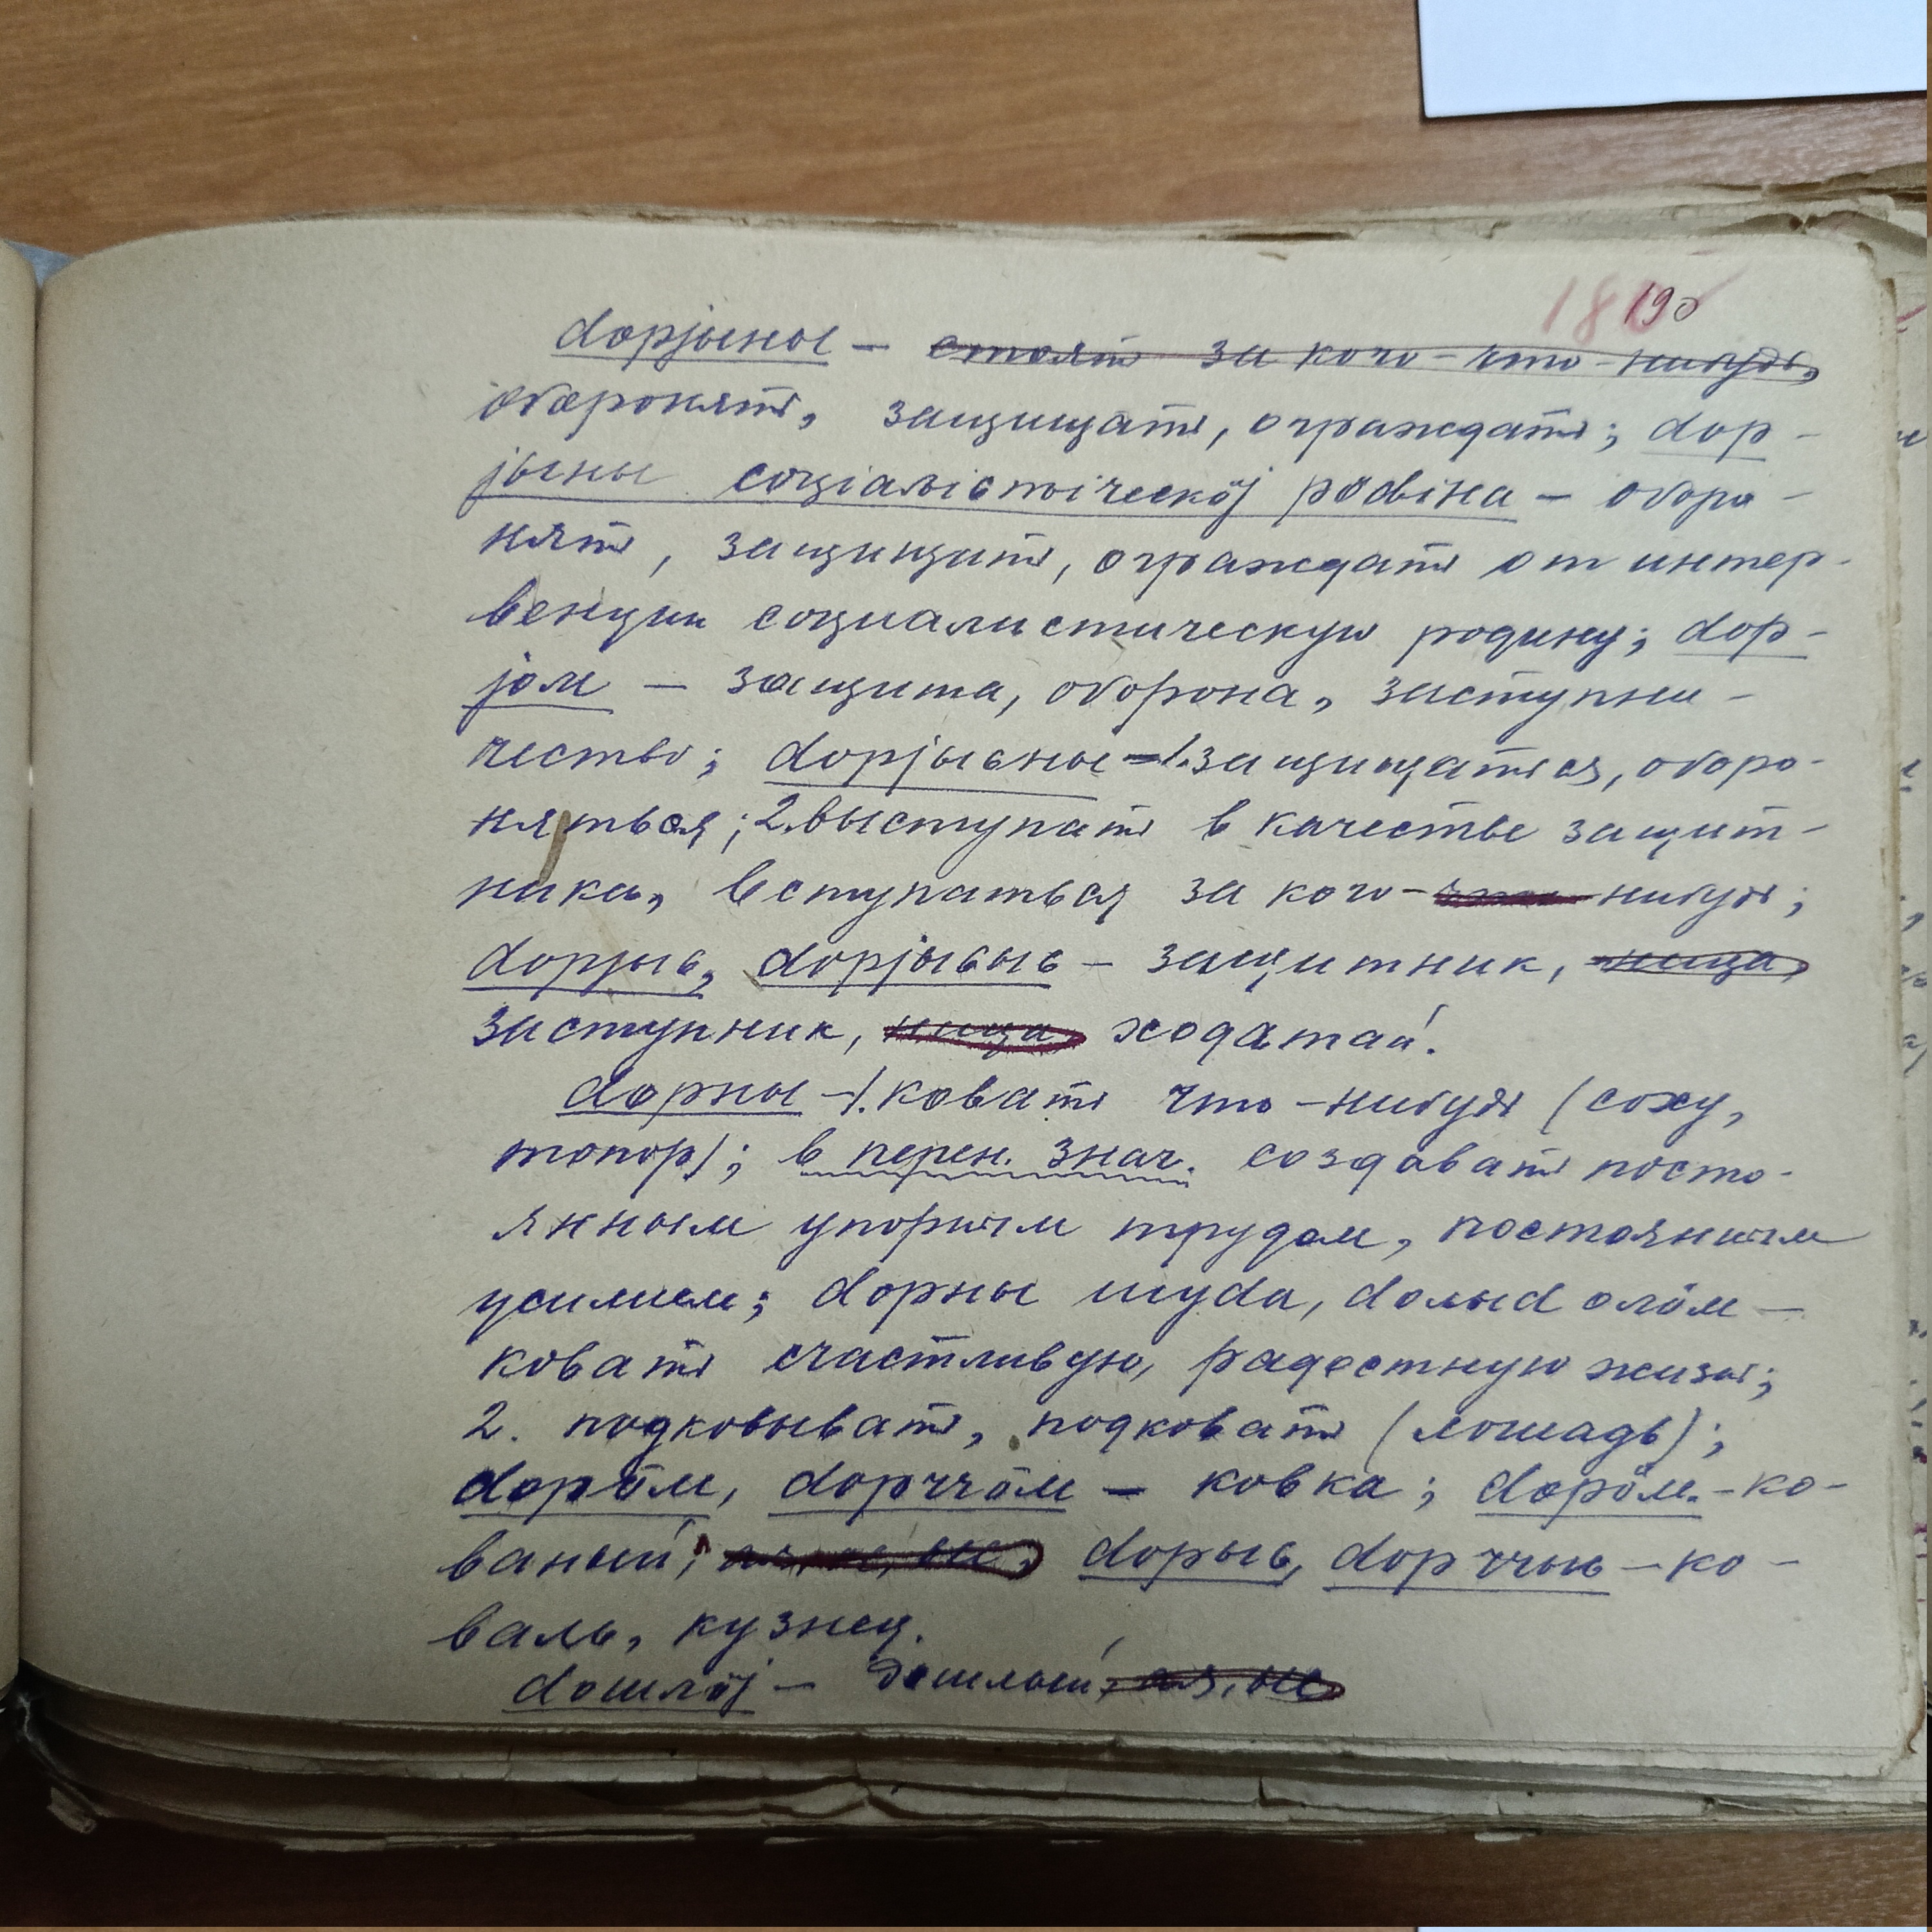 190
dорjыны – стоять за кого-что-нибудь,
оборонять, защищать, ограждать; dор-
jыны соціалістіческӧj роdіна – оборо-
нять, защищать, ограждать от интер-
венции социалистическую родину; dор-
jӧм – защита, оборона, заступни-
чество; dорjысны – 1. защищаться, оборо-
няться; 2. выступать в качестве защит-
ника, вступаться за кого- нибудь;
dорjыс, dорjысыс – защитник, -ница,
заступник, -ница, ходатай.
dорны – 1. ковать что-нибудь (соху,
топор); в перен. знач. создавать посто-
янным упорным трудом, постоянным
усилием; dорны шуdа, dолыd олӧм –
ковать счастливую, радостную жизнь;
2. подковывать, подковать (лошадь);
dорӧм, dорччӧм – ковка; dорӧм. – ко-
ваный; dорыс, dорччыс – ко-
валь, кузнец.
dошлӧj – дошлый,